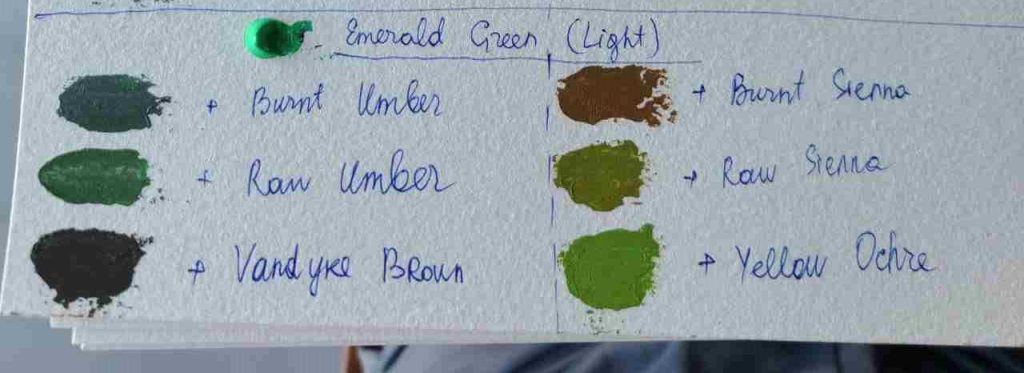 Emerald Green (Light)
+ Burnt Umber
+ Burnt Sienna
+ Raw Umber
+ Raw Sienna
+ Vandyke Brown
+ Yellow Ochre